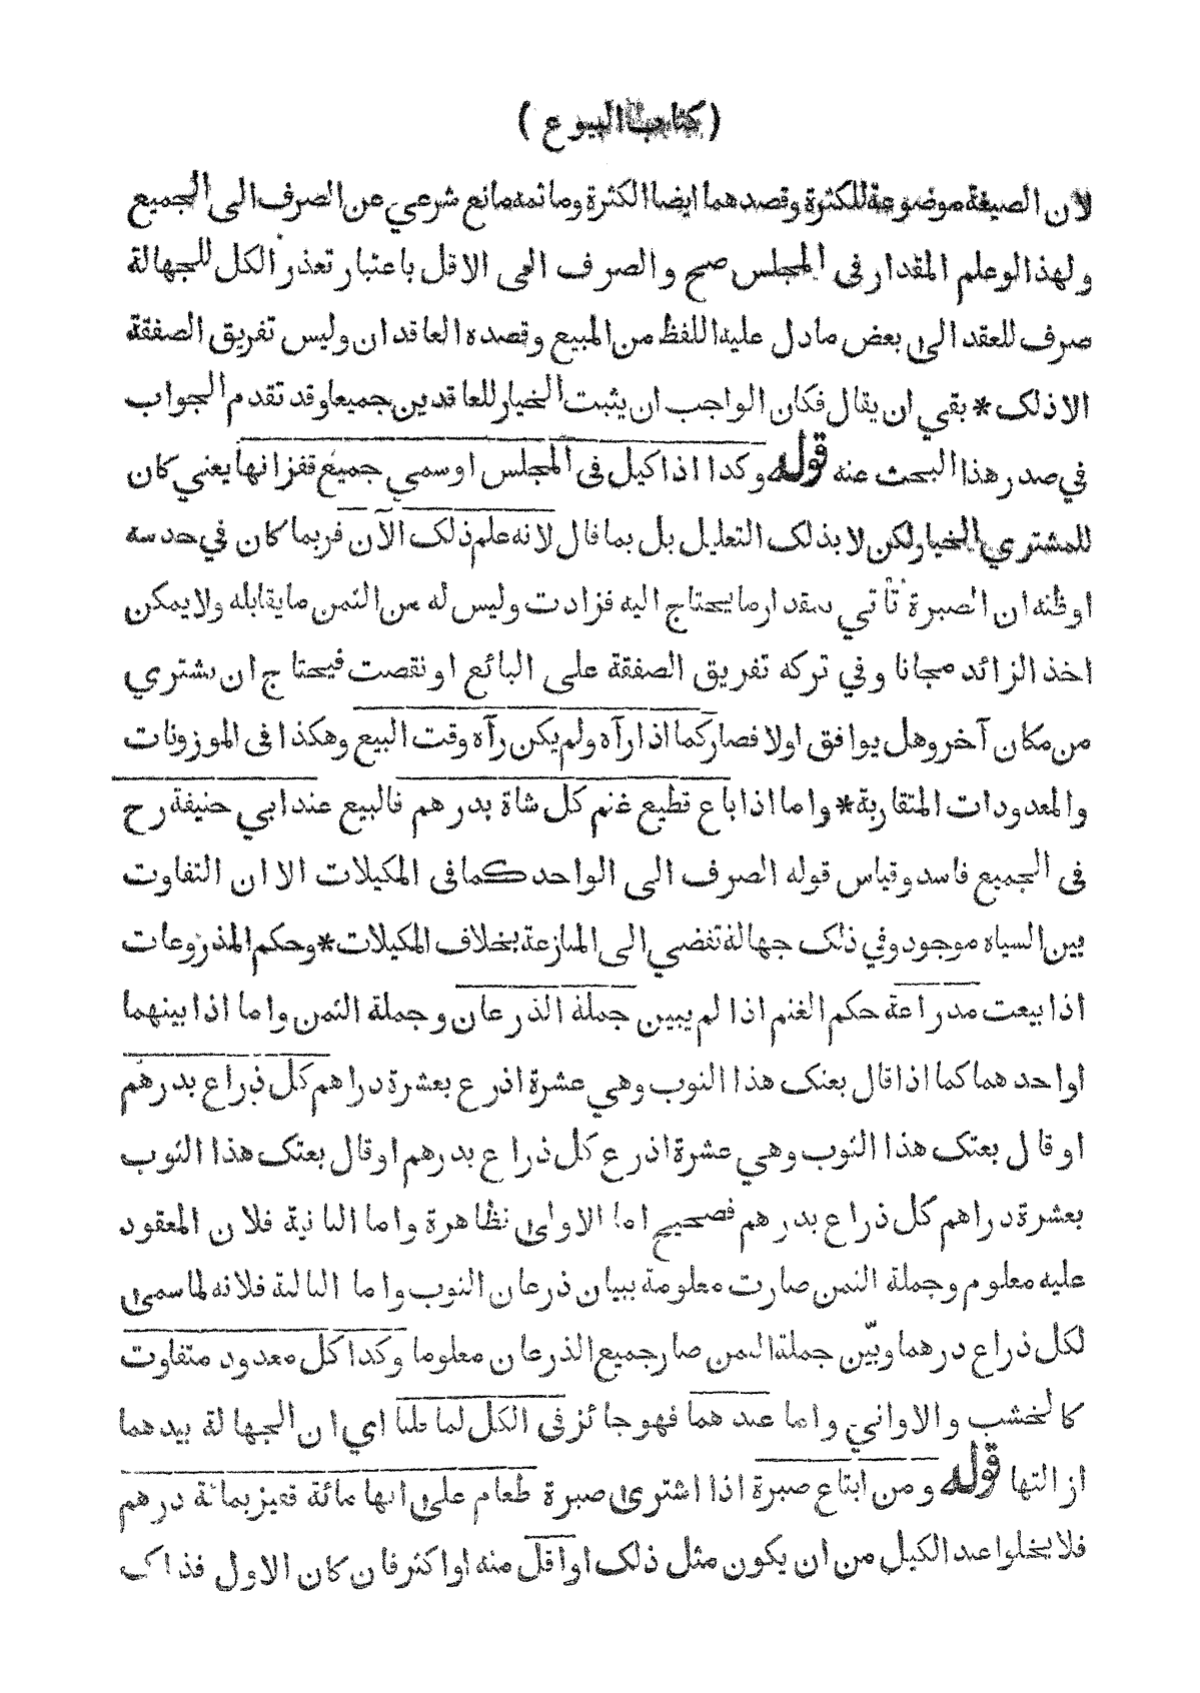 ( كتاب البيوع )
لان الصيغة موضوعة للكثرة وقصدهما ايضا الكثرة وما ثمه مانع شرعي عن الصرف الى الجميع
ولهذا لو علم المقدار فى المجلس صح والصرف الى الاقل باعتبار تعذر الكل للجهالة
صرف للعقد الى بعض ما دل عليه اللفظ من المبيع وقصده العاقدان وليس تفريق الصفقة
الا ذلك * بقي ان يقال فكان الواجب ان يثبت الخيار للعاقدين جميعا وقد تقدم الجواب
في صدر هذا البحث عنه قوله وكذا اذا كيل فى المجلس او سمي جميع قفزانها يعني كان
للمشتري الخيار لكن لا بذلك التعليل بل بما قال لانه علم ذلك الآن فربما كان في حدسه
او ظنه ان الصبرة تأتي بمقدار ما يحتاج اليه فزادت وليس له من الثمن ما يقابله ولا يمكن
اخذ الزائد مجانا وفي تركه تفريق الصفقة على البائع او نقصت فيحتاج ان يشتري
من مكان آخر وهل يوافق اولا فصار كما اذا رآه ولم يكن رآه وقت البيع وهكذا فى الموزونات
والمعدودات المتقاربة * واما اذا باع قطيع غنم كل شاة بدرهم فالبيع عند ابي حنيفة رح
فى الجميع فاسد وقياس قوله الصرف الى الواحد كما فى المكيلات الا ان التفاوت
بين الشياه موجود وفي ذلك جهالة تفضي الى المنازعة بخلاف المكيلات * وحكم المذروعات
اذا بيعت مذراعة حكم الغنم اذا لم يبين جملة الذرعان وجملة الثمن واما اذا بينهما
او احدهما كما اذا قال بعتك هذا الثوب وهي عشرة اذرع بعشرة دراهم كل ذراع بدرهم
او قال بعتك هذا الثوب وهي عشرة اذرع كل ذراع بدرهم او قال بعتك هذا الثوب
بعشرة دراهم كل ذراع بدرهم فصحيح اما الاولى فظاهرة واما الثانية فلان المعقود
عليه معلوم وجملة الثمن صارت معلومة ببيان ذرعان الثوب واما الثالثة فلانه لما سمى
لكل ذراع درهما وبيّن جملة الثمن صار جميع الذرعان معلوما وكذا كل معدود متفاوت
كالخشب والاواني واما عندهما فهو جائز فى الكل لما قلنا اي ان الجهالة بيدهما
ازالتها قوله ومن ابتاع صبرة اذا اشترى صبرة طعام على انها مائة قفيز بمائة درهم
فلا يخلوا عند الكيل من ان يكون مثل ذلك او اقل منه او اكثر فان كان الاول فذاك